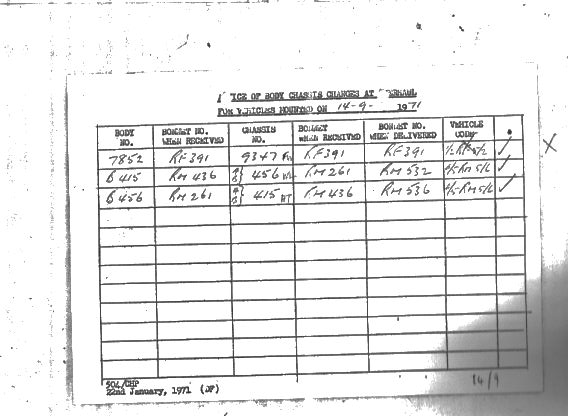 OF BODY CHASSIS CHANGES AT
FOR VEHICLES MOUNTED ON 14-9- 1971
BODY NO. BONNET NO. WHEN RECEIVED CHASSIS NO. BONNET WHEN RECEIVED BONNET NO. WHEN DELIVERED VEHICLE CODE
7852 RF391 9347 RF391 RF391 ✓ X
B 415 RM 436 456 RM 261 RM 532 ✓
B 456 RM 261 415 RM 436 RM 536 ✓
504/CHP
22nd January, 1971 (JF)
14/9